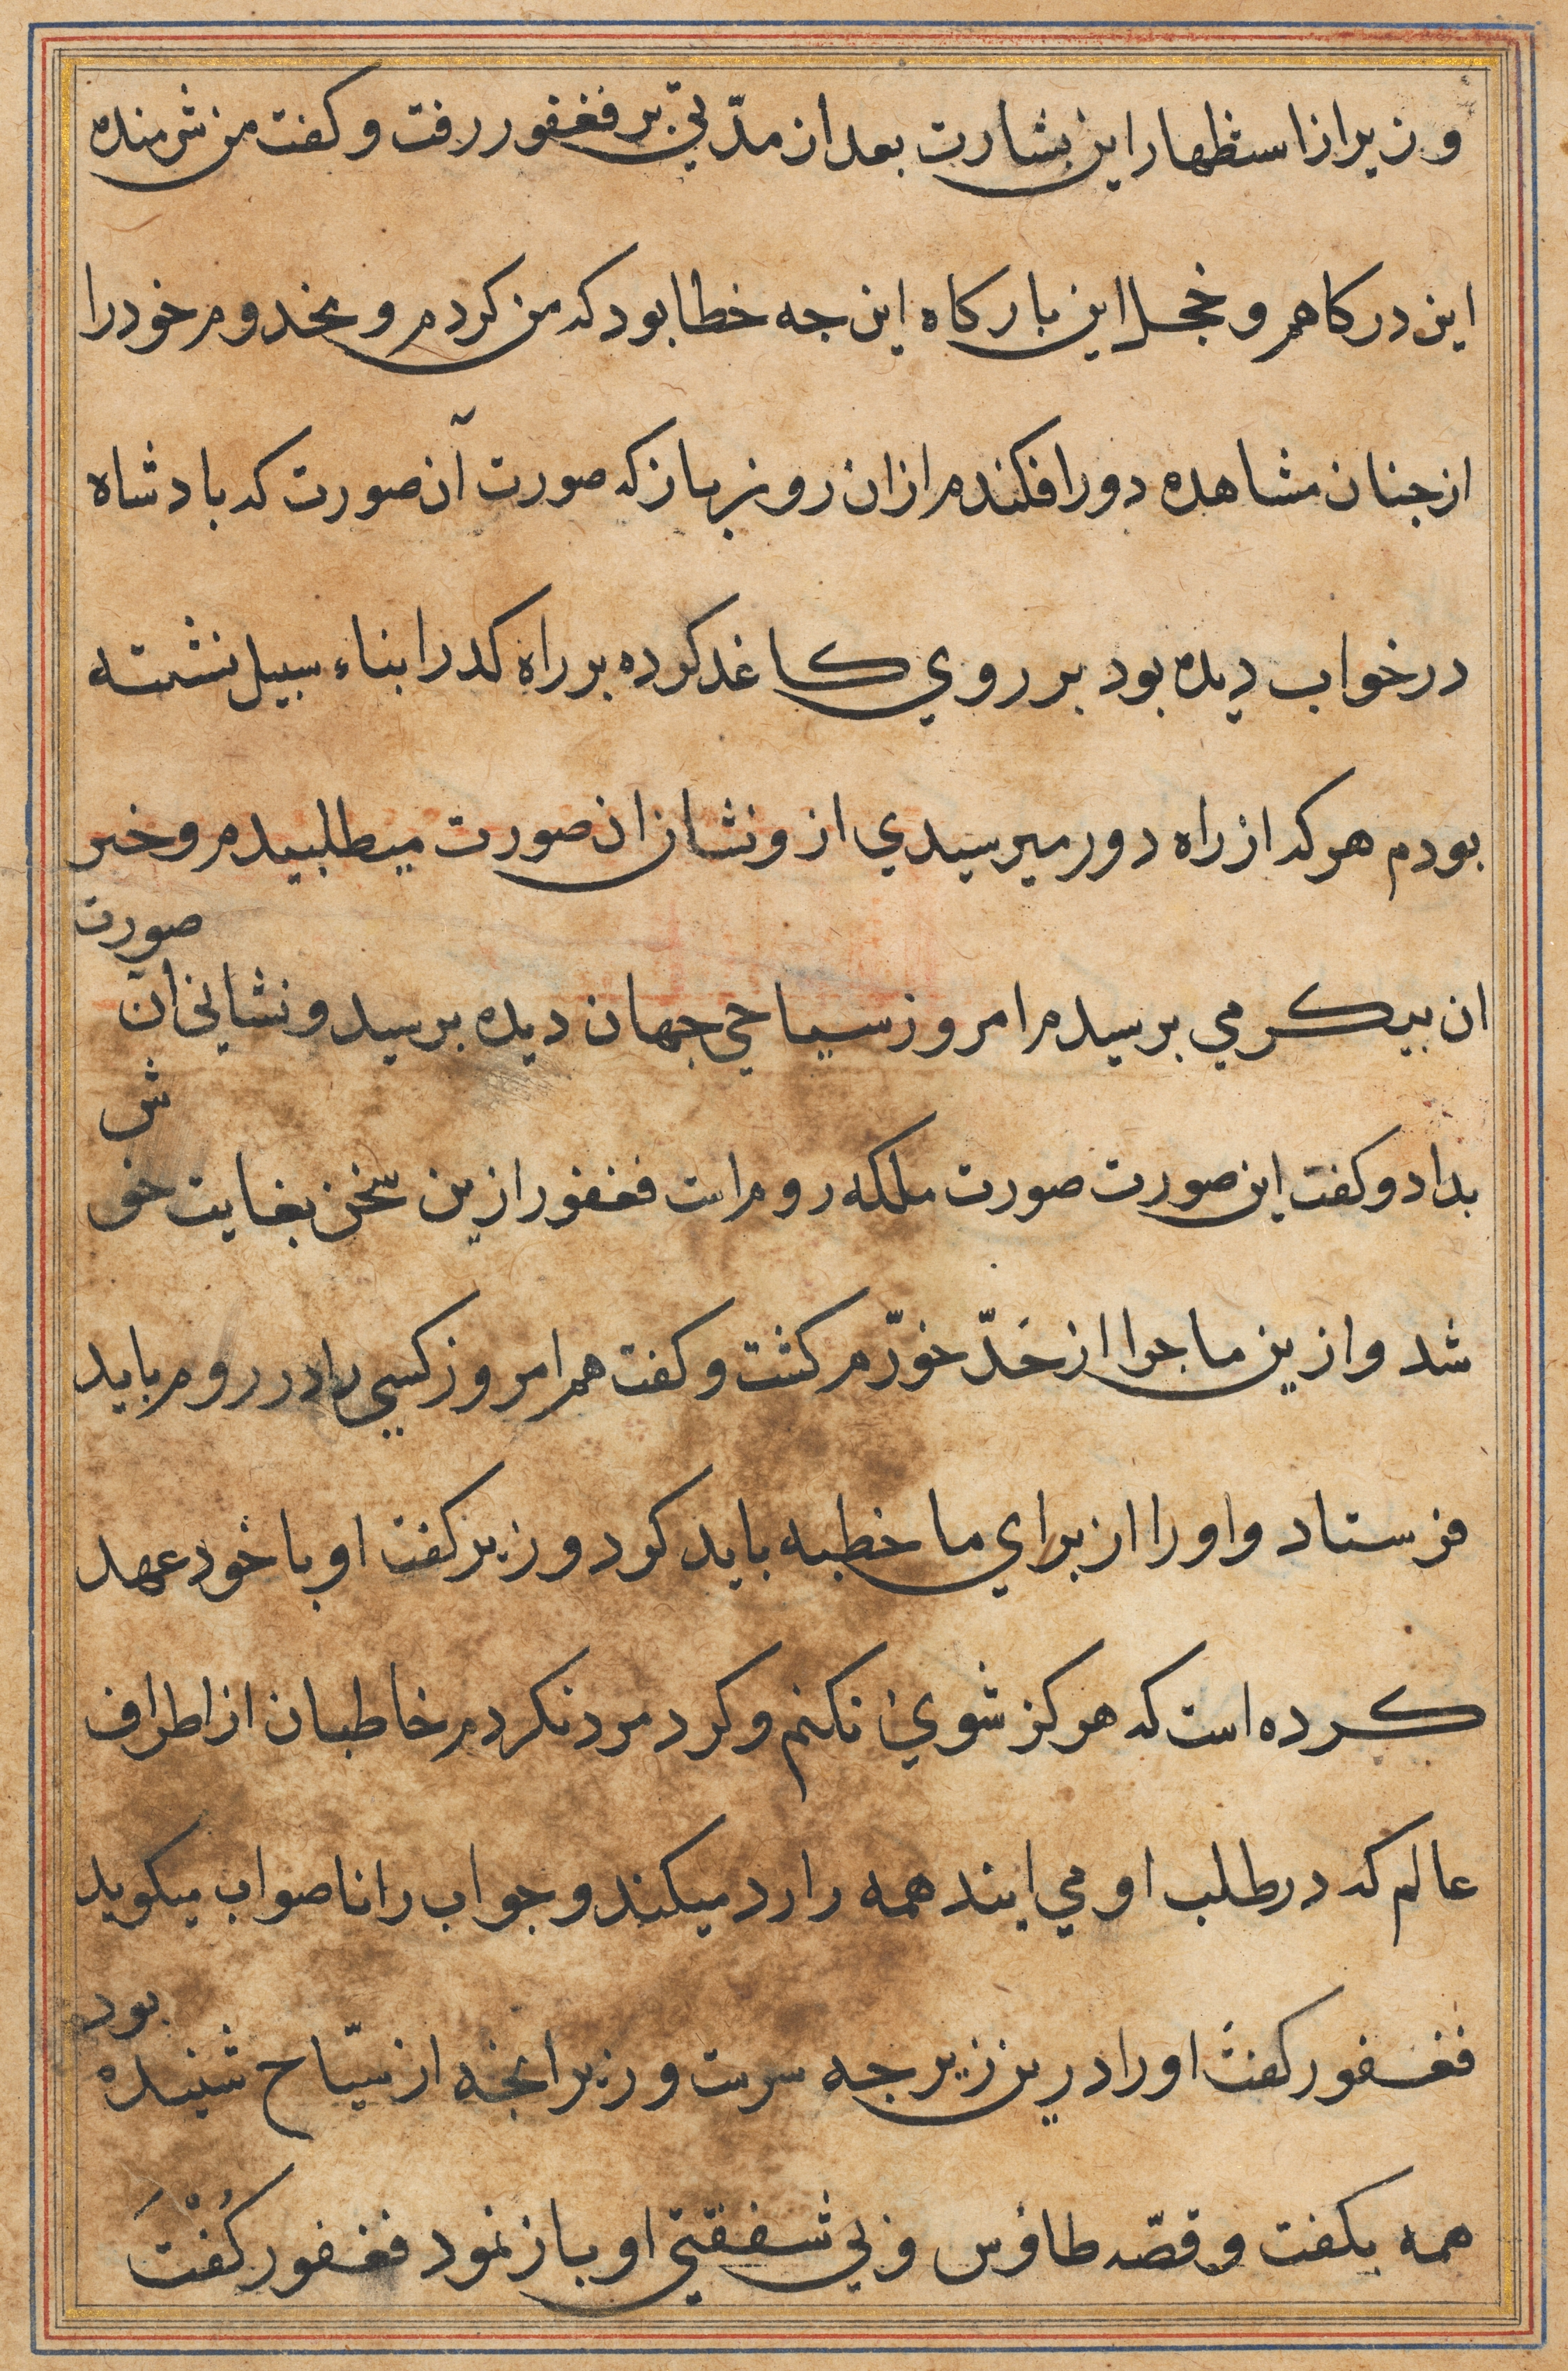 وزیر از استظهار این بشارت بعد از مدّتي بر فغفور رفت و کفت من شرمنده
این درکاهم و خجل این بارکاه این جه خطا بود که من کردم و مخدوم خود را
از جنان مشاهده دور افکندم از ان روز باز که صورت آن صورت که بادشاه
در خواب دیده بود بر روي کاغذ کرده بر راه کدر ابناء سبیل نشسته
بودم هر که از راه دور میرسیدي ازو نشان ان صورت میطلبیدم و خبر
ان بیکر مي برسیدم امروز سیاحي جهان دیده برسید و نشاني ان صورت
بداد و کفت این صورت صورت ملکه روم است فغفور ازین سخن بغایت خوش
شد و ازین ماجرا از حَدّ خورّم کشت و کفت هم امروز کسي را در روم باید
فرستاد و او را از براي ما خطبه باید کرد وزیر کفت او با خود عهد
کرده است که هرکز شوي نکنم و کرد مرد نکردم خاطبان از اطراف
عالم که در طلب او مي ایند همه را رد میکند و جواب را ناصواب میکوید
فغفور کفت او را درین زیر جه سرست وزیر انجه از سیّاح شنیده بود
همه بکفت و قصّه طاوُس و بي شفقتي او باز نمود فغفور کُفْتَ